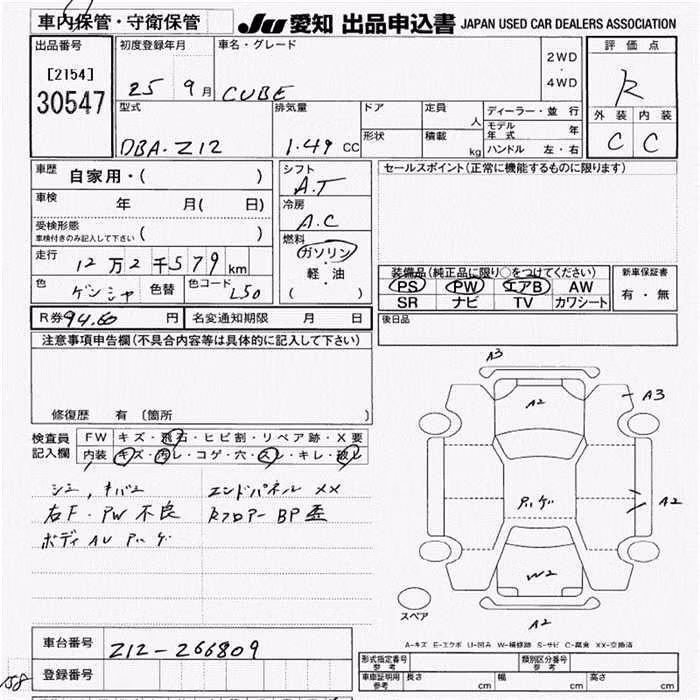 車内保管・守衛保管
JU 愛知 出品申込書 JAPAN USED CAR DEALERS ASSOCIATION
出品番号
[2154]
30547
初度登録年月
25 9月
車名・グレード
CUBE
2WD
・
4WD
評価点
R
外装 内装
C C
型式
DBA-Z12
排気量
1.49 CC
ドア
形状
定員 人
積載 kg
ディーラー・並行
モデル年式 年
ハンドル 左・右
車歴 自家用・( )
車検 年 月( 日)
受検形態
車検付きのみ記入して下さい ( )
走行 12万2千579km
色 色替 色コード L50
シフト
A.T
冷房
A.C
燃料
ガソリン
・
軽油
( )
セールスポイント(正常に機能するものに限ります)
装備品(純正品に限り○をつけてください)
PS PW エアB AW
SR ナビ TV カワシート
新車保証書
有・無
R券 円 名変通知期限 月 日
後日品
注意事項申告欄(不具合内容等は具体的に記入して下さい)
修復歴 有 〔箇所 〕
検査員記入欄
FW キズ・飛石・ヒビ割・リペア跡・X要
内装 キズ・汚レ・コゲ・穴・スレ・キレ・破レ
エンドパネル XX
右F・PW不良
Rフロアー BP歪
A3
A2
A3
A2
W2
A2
スペア
A-キズ E-エクボ U-凹み W-補修跡 S-サビ C-腐食 XX-交換済
車台番号 Z12-266809
登録番号
型式指定番号 参考
類別区分番号 参考
車庫証明用 参考
長さ cm 幅 cm 高さ cm